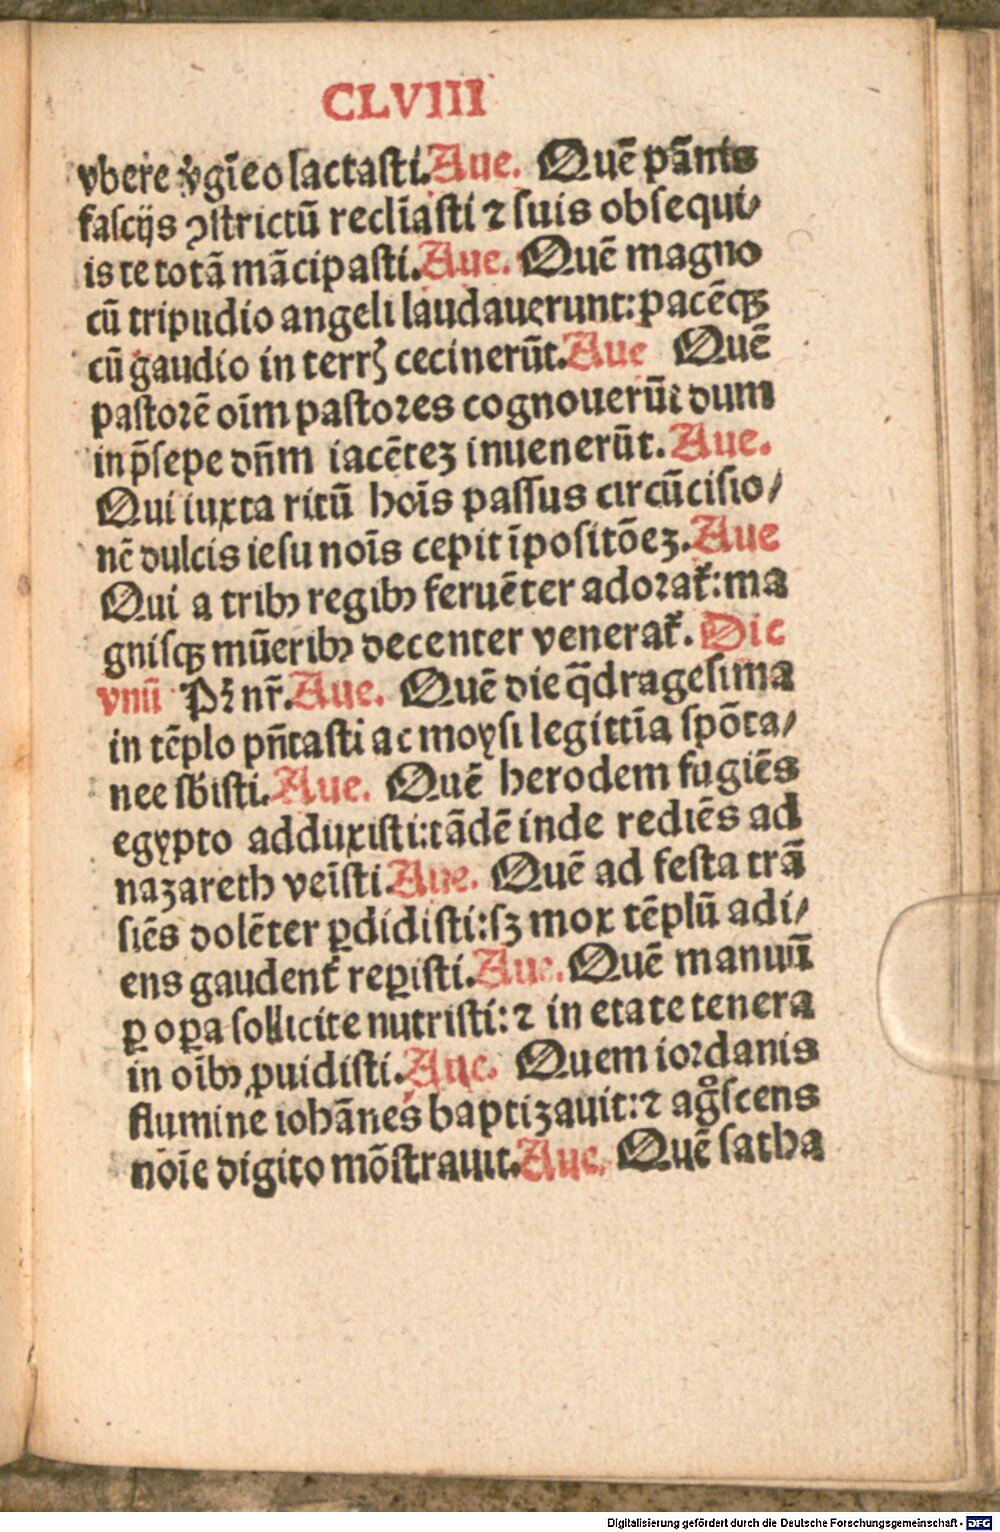 CLVIII
vbere v̾gīeo lactasti. Aue. Quē pānis
fascijs ꝯstrictū reclīasti ⁊ suis obsequi⸗
is te totā mācipasti. Aue. Quē magno
cū tripudio angeli laudauerunt: pacēqꝫ
cū gaudio in terrꝭ cecinerūt. Aue Quē
pastorē oīm pastores cognouerūt dum
in p̄sepe dn̄m iacēteꝫ inuenerūt. Aue.
Qui iuxta ritū hoīs passus circūcisio⸗
nē dulcis iesu noīs cepit īpositōeꝫ. Aue
Qui a tribꝰ regibꝰ feruēter adorat᷑: ma
gnisqꝫ mūeribꝰ decenter venerat᷑. Dic
vnū Pr̄ nr̄. Aue. Quē die q̄dragesima
in tēplo pn̄tasti ac moysi legittīa spōta⸗
nee sb̄isti. Aue. Quē herodem fugiēs
egypto adduxisti: tādē inde rediēs ad
nazareth veīsti Aue. Quē ad festa trā
siēs dolēter ꝑdidisti: sꝫ mox tēplū adi⸗
ens gaudent᷑ reꝑisti. Aue. Quē manuū
ꝑ oꝑa sollicite nutristi: ⁊ in etate tenera
in oībꝰ ꝓuidisti. Aue. Quem iordanis
flumine iohānes baptizauit: ⁊ ag̊scens
noīe digito mōstrauit. Aue. Quē satha
Digitalisierung gefördert durch die Deutsche Forschungsgemeinschaft - DFG